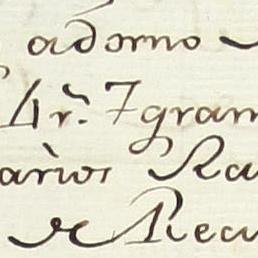 adorno
4 r.ˢ 7 gram
arios Ra
de Recu